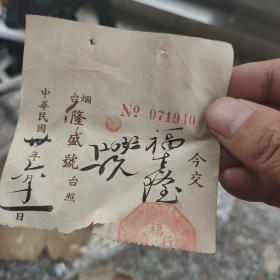 No 071940
今交
福生隆
號
烟台隆盛號台照
中華民國卅年月日
福